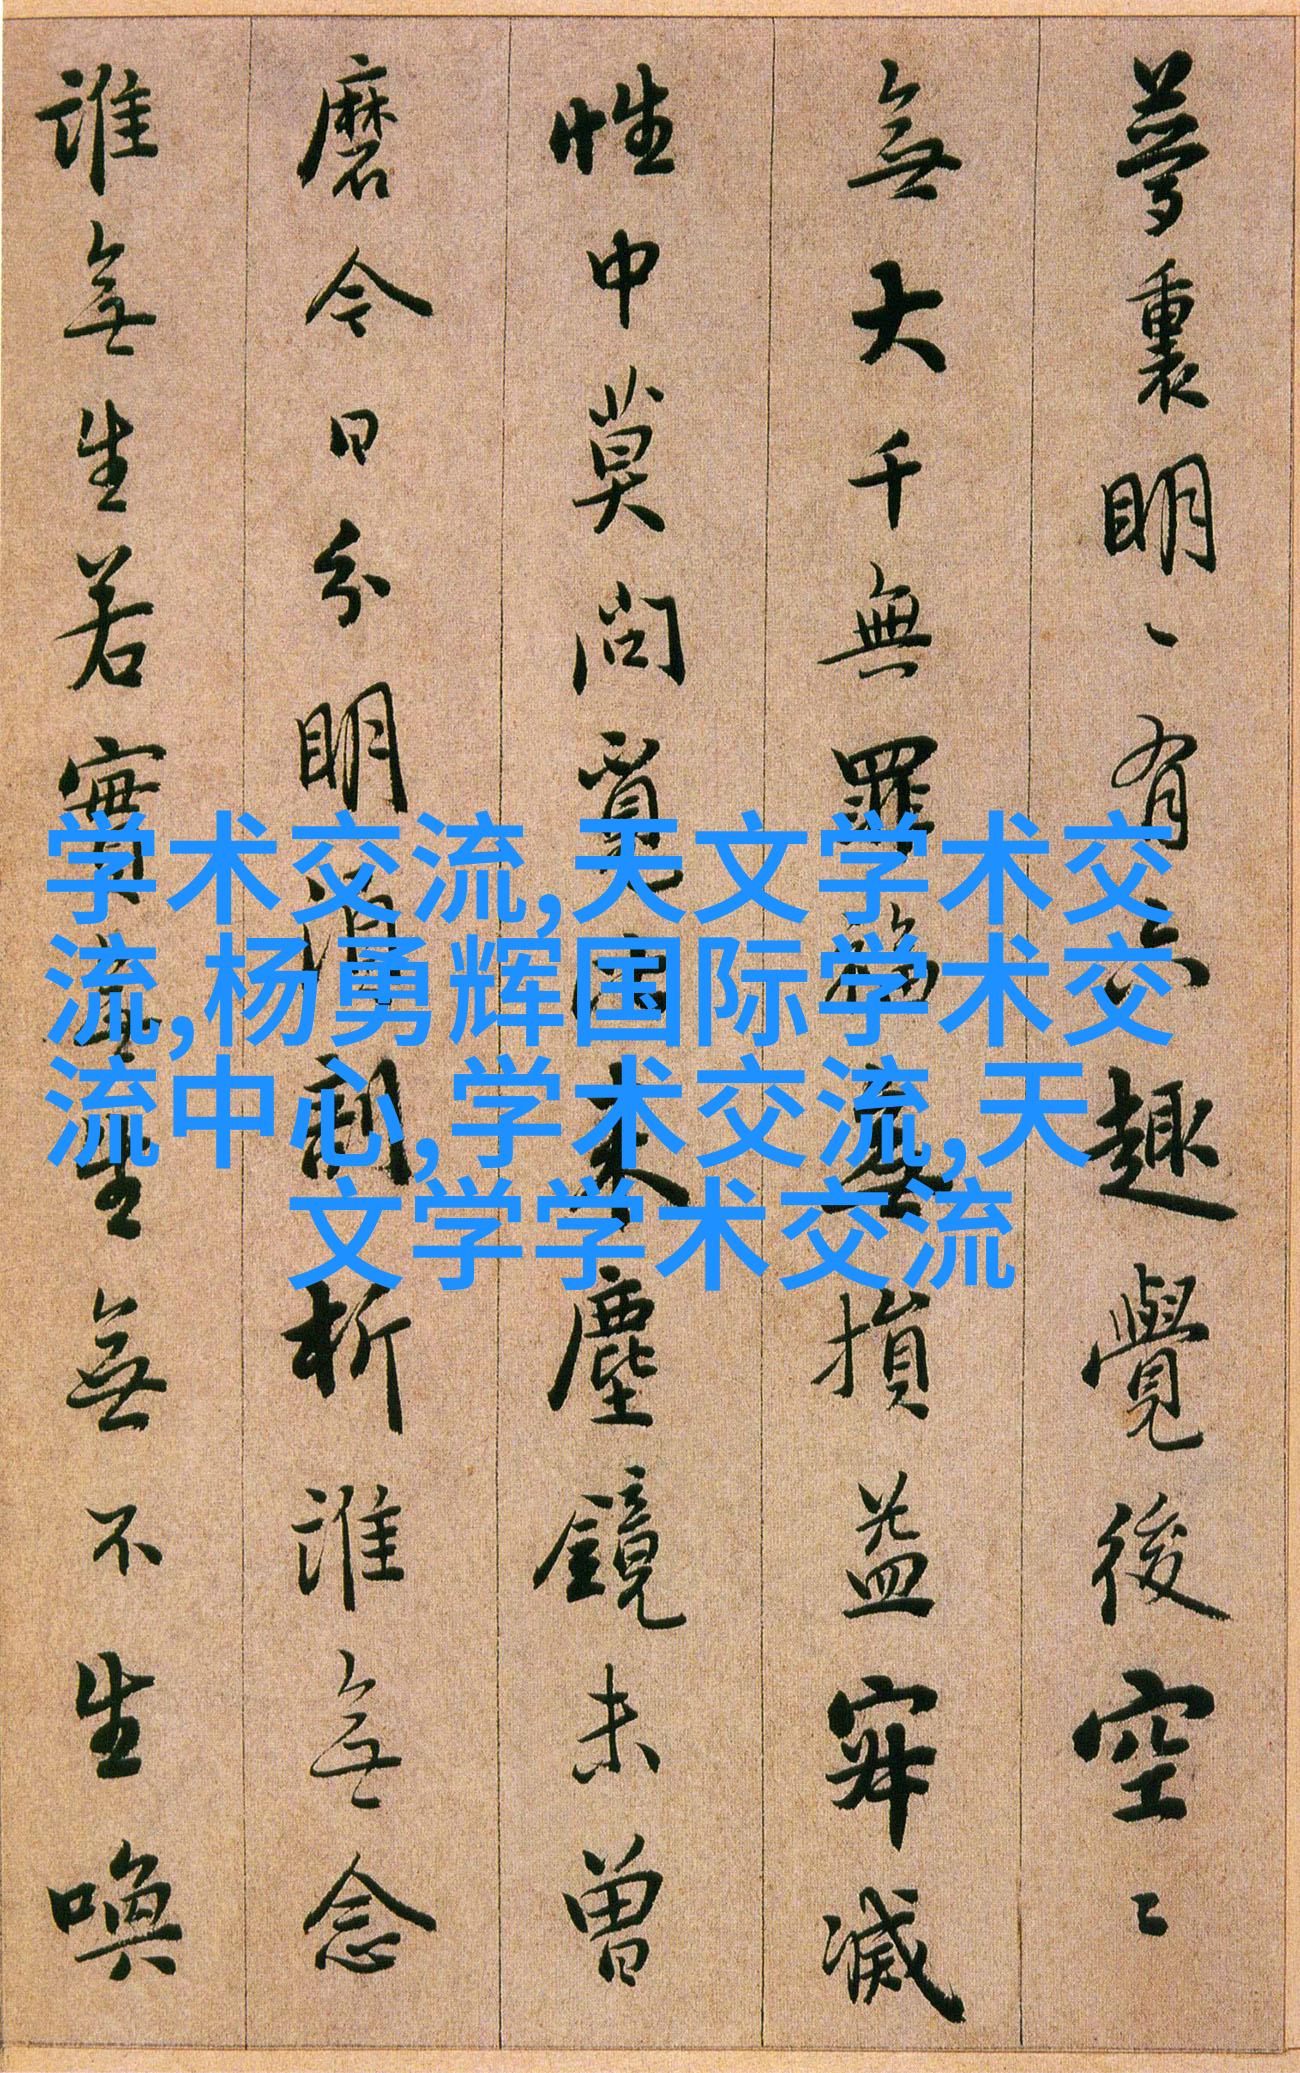 夢裏明々有六趣覺後空々
無大千無罪福無損益寂滅
性中莫問覓比來塵鏡未曾
磨今日分明須剖析誰無念
誰無生若實無生無不生喚
学术交流,天文学术交
流,杨勇辉国际学术交
流中心,学术交流,天
文学学术交流